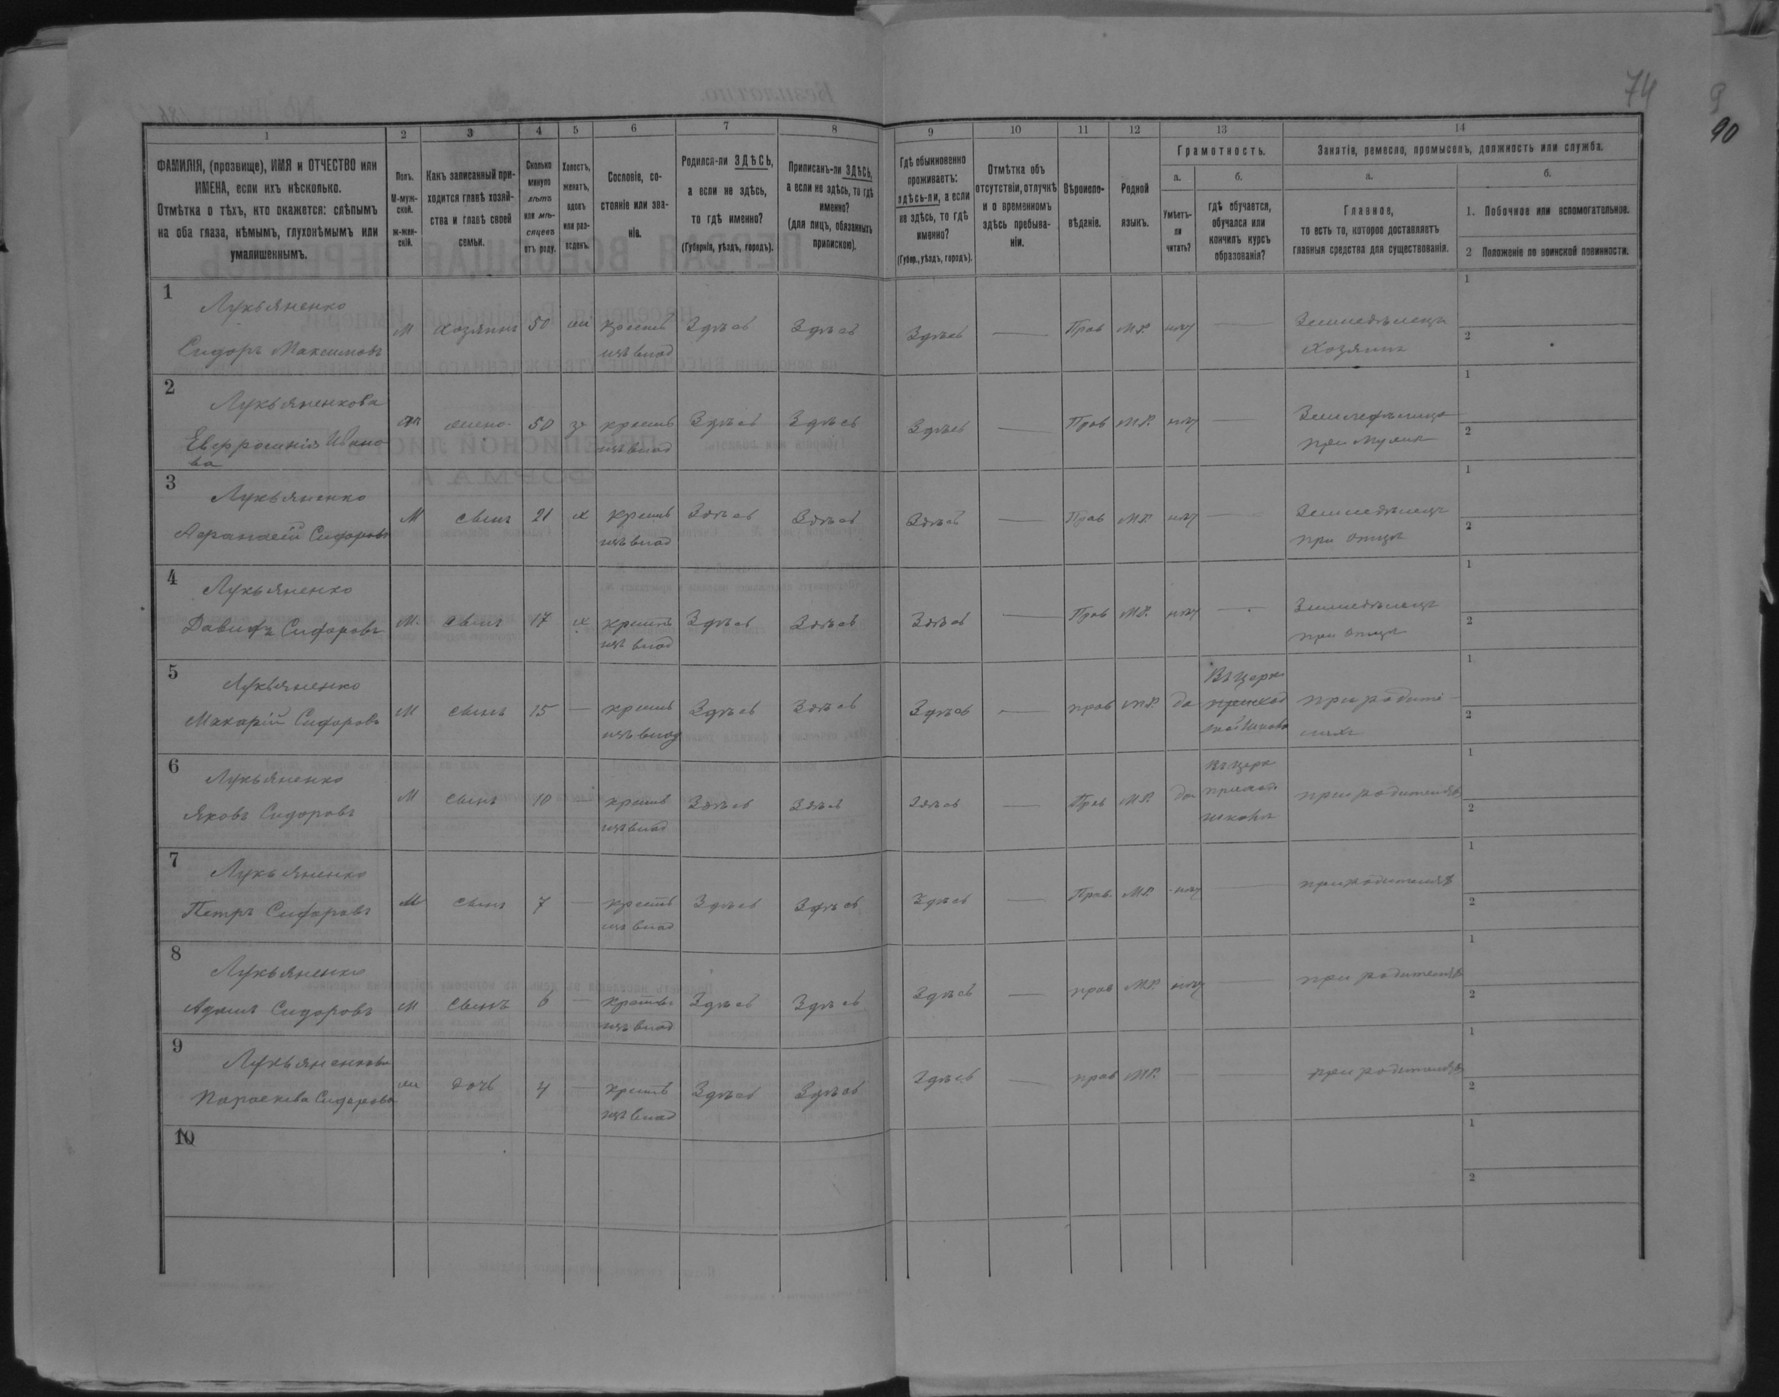 74
90
1 2 3 4 5 6 7 8 9 10 11 12 13 14
ФАМИЛІЯ, (прозвище), ИМЯ и ОТЧЕСТВО или
ИМЕНА, если ихъ нѣсколько.
Отмѣтка о тѣхъ, кто окажется: слѣпымъ
на оба глаза, нѣмымъ, глухонѣмымъ или
умалишеннымъ.
Полъ.
М-муж-
ской.
ж-жен-
скій.
Какъ записанный при-
ходится главѣ хозяй-
ства и главѣ своей
семьи.
Сколько
минуло
лѣтъ
или мѣ-
сяцевъ
отъ роду.
Холостъ,
женатъ,
вдовъ
или раз-
веденъ.
Сословіе, со-
стояніе или зва-
ніе.
Родился-ли ЗДѢСЬ,
а если не здѣсь,
то гдѣ именно?
(Губернія, уѣздъ, городъ).
Приписанъ-ли ЗДѢСЬ,
а если не здѣсь, то гдѣ
именно?
(для лицъ, обязанныхъ
припискою).
Гдѣ обыкновенно
проживаетъ:
здѣсь-ли, а если
не здѣсь, то гдѣ
именно?
(Губер., уѣздъ, городъ).
Отмѣтка объ
отсутствіи, отлучкѣ
и о временномъ
здѣсь пребыва-
ніи.
Вѣроиспо-
вѣданіе.
Родной
языкъ.
Грамотность.
а.
Умѣетъ-
ли
читать?
б.
гдѣ обучается,
обучался или
кончилъ курсъ
образованія?
Занятія, ремесло, промыселъ, должность или служба.
а.
Главное,
то есть то, которое доставляетъ
главныя средства для существованія.
б.
1. Побочное или вспомогательное.
2 Положеніе по воинской повинности.
1
Лукьяненко
Сидоръ Максимовъ
М хозяинъ 50 жн крестъ Здѣсь Здѣсь Здѣсь — Прав М.Р. нѣт — Земледѣлецъ
изъ влад Хозяинъ
1
2
2
Лукьяненкова
Евфросинія Ивано
ва
ж жена 50 зж крестъ Здѣсь Здѣсь Здѣсь — Прав М.Р. нѣт — Земледѣлица
изъ влад при мужѣ
1
2
3
Лукьяненко
Афанасій Сидоровъ
М сынъ 21 х крестъ Здѣсь Здѣсь Здѣсь — Прав М.Р. нѣт — Земледѣлецъ
изъ влад при отцѣ
1
2
4
Лукьяненко
Давидъ Сидоровъ
М. сынъ 17 х крестъ Здѣсь Здѣсь Здѣсь — Прав М.Р. нѣт — Земледѣлецъ
изъ влад при отцѣ
1
2
5
Лукьяненко
Макарій Сидоровъ
М сынъ 15 — крестъ Здѣсь Здѣсь Здѣсь — прав М.Р. да Въ церк
приход
ской школѣ
изъ влад
при родите-
ляхъ
1
2
6
Лукьяненко
Яковъ Сидоровъ
М сынъ 10 — крестъ Здѣсь Здѣсь Здѣсь — Прав М.Р. да Въ церк
приход
школѣ
изъ влад
при родителяхъ
1
2
7
Лукьяненко
Петръ Сидоровъ
М сынъ 7 — крестъ Здѣсь Здѣсь Здѣсь — Прав М.Р. нѣт — при родителяхъ
изъ влад
1
2
8
Лукьяненко
Адамъ Сидоровъ
М сынъ 6 — крестъ Здѣсь Здѣсь Здѣсь — прав М.Р. нѣт — при родителяхъ
изъ влад
1
2
9
Лукьяненкова
Параскева Сидорова
ж дочь 4 — крестъ Здѣсь Здѣсь Здѣсь — прав М.Р. — — при родителяхъ
изъ влад
1
2
10
1
2